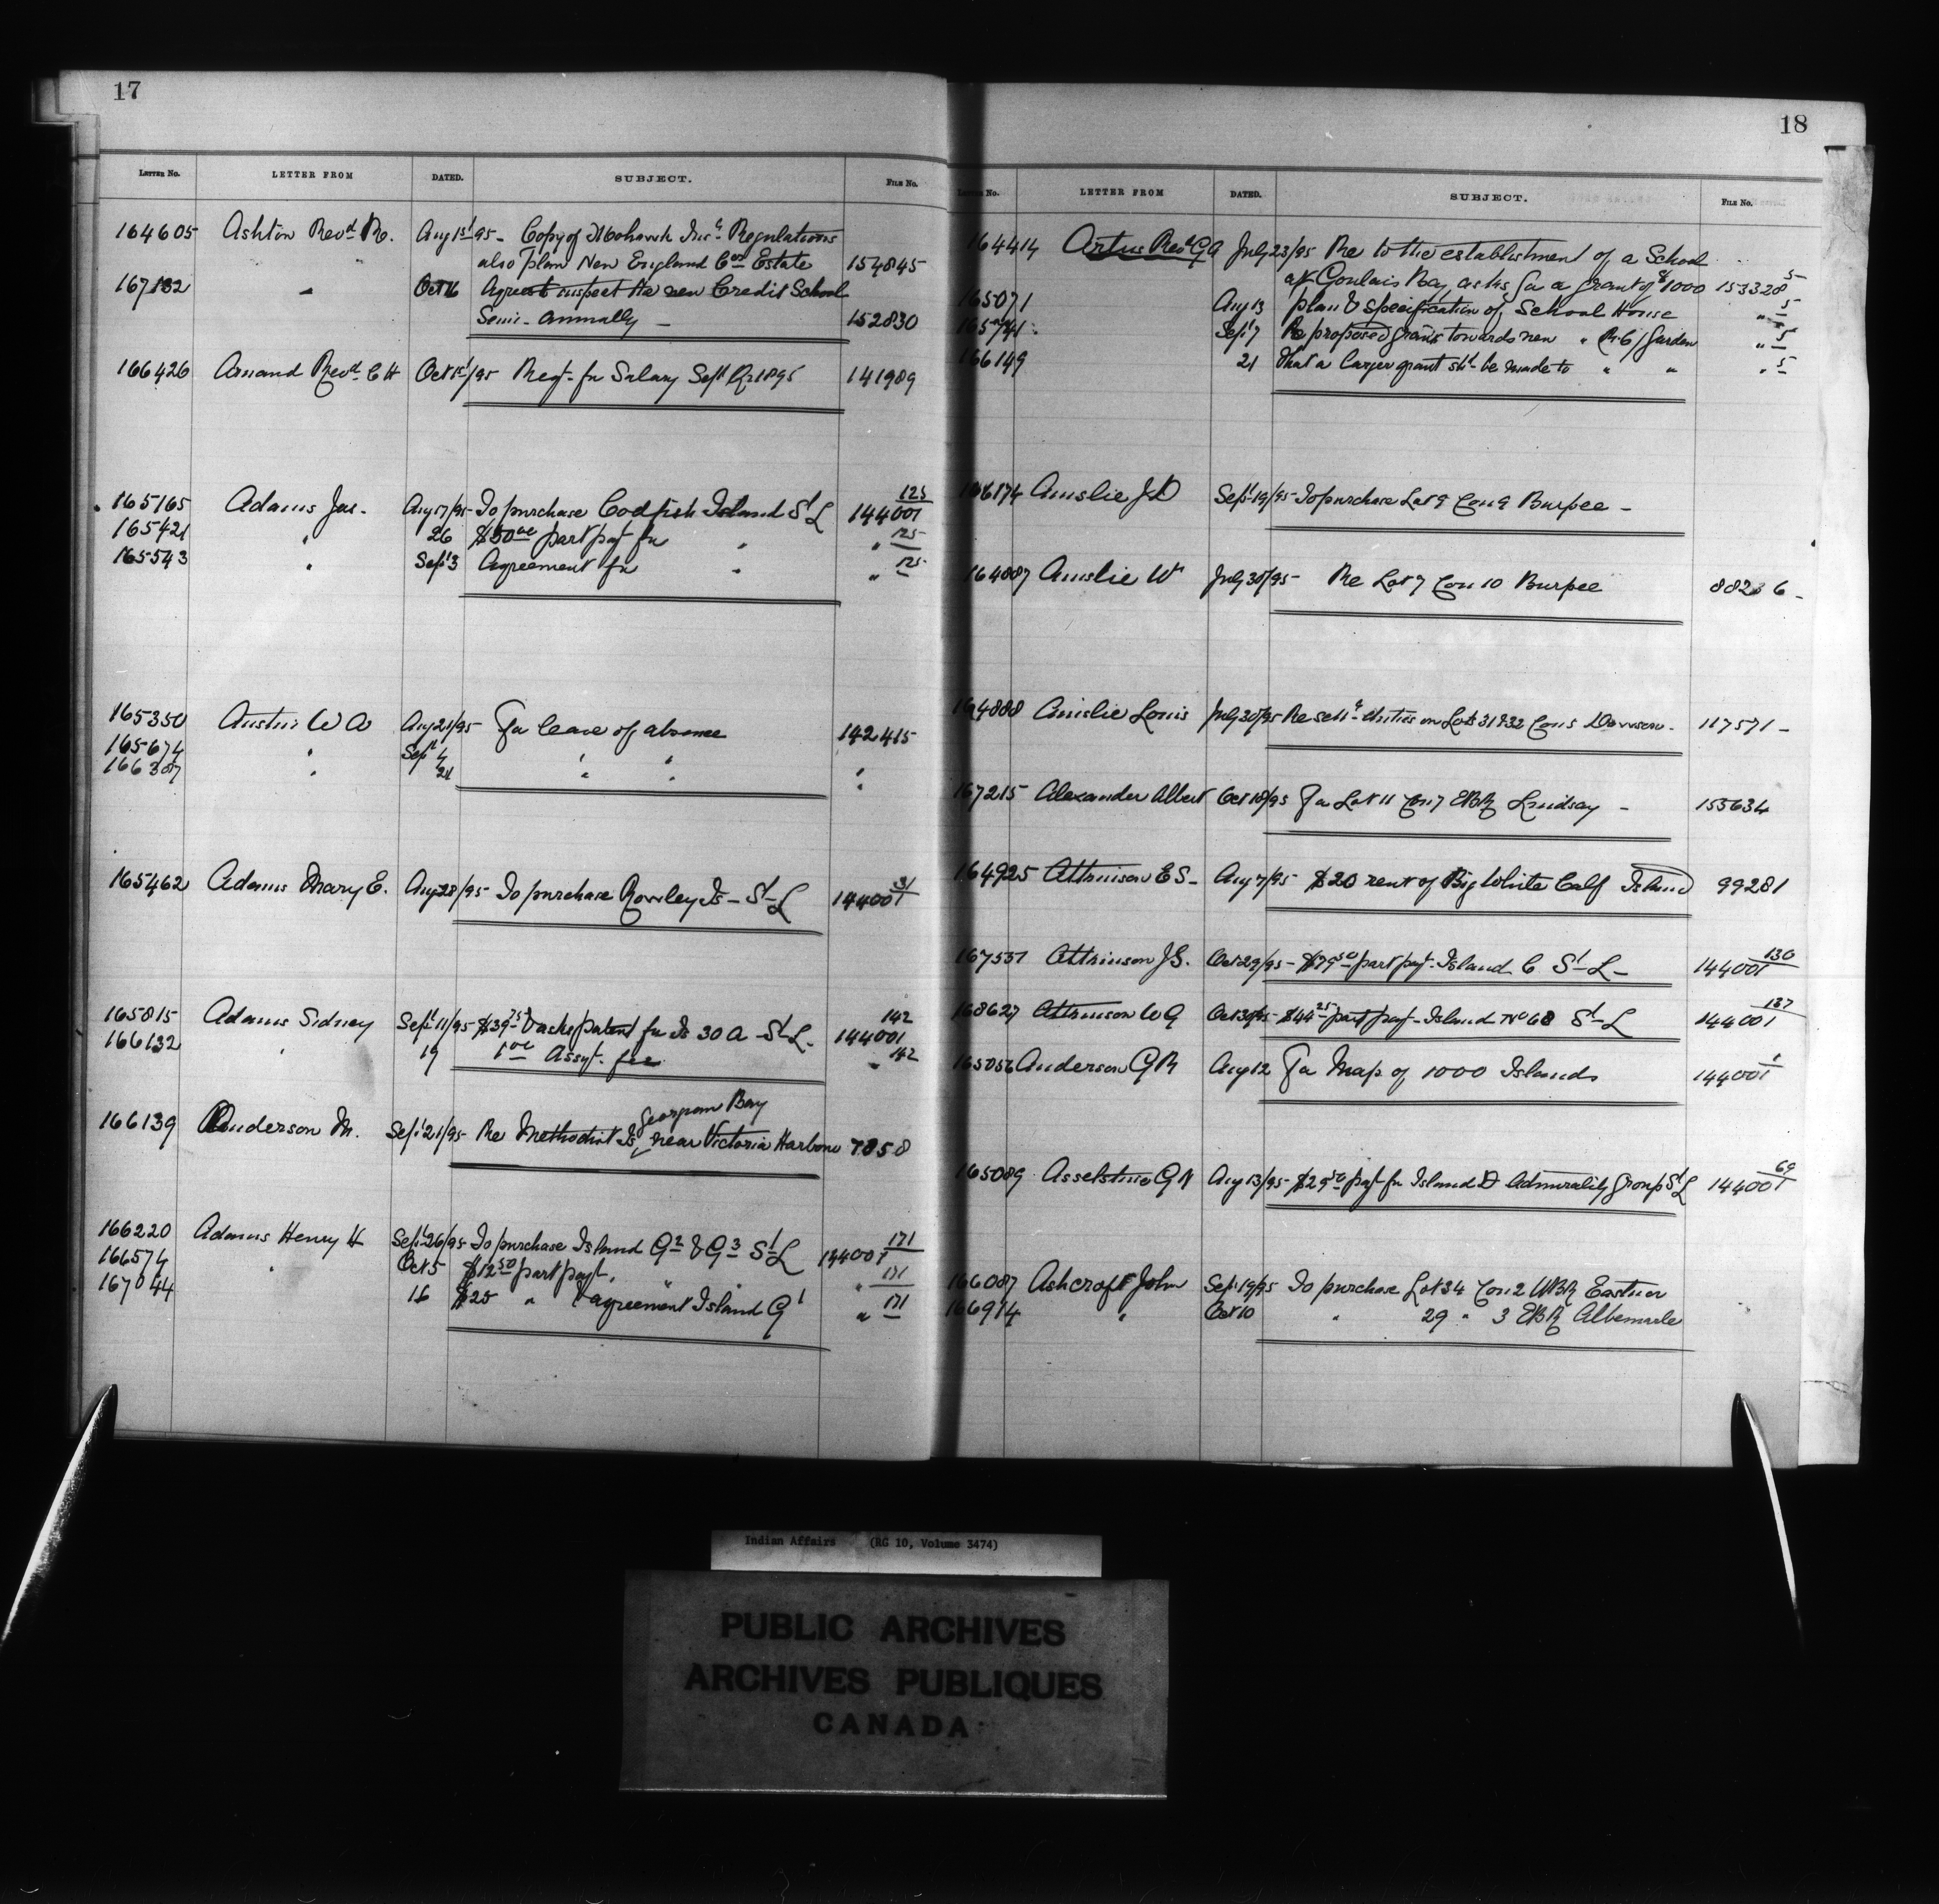 17
LETTER NO. LETTER FROM DATED. SUBJECT. FILE NO.
164605 Ashton Revd R. Aug 1st 95 - Copy of Mohawk Insn Regulations
" also plan New England Cos Estate 154845
167132 " Oct 16 Agrees to inspect the new Credit School
Semi-annually - 152830
166426 Arnand Revd C H Oct 1st/95 Reqt. for Salary Sept Qr 1895 141989
165165 Adams Jas. Aug 17/95 - To purchase Codfish Island St L 144001 125
165421 " 26 $50 00 part payt for " " 125
165543 " Sept 3 Agreement for " " 125
165350 Austin W A Aug 21/95 For leave of absence 142415
165674 " Sept 4 " " "
166307 " 21 " " "
165462 Adams Mary E. Aug 28/95 - To purchase Rowley Is - St L 144001 31
165815 Adams Sidney Sept 11/95 $39 75 & asks patent for Is 30 A - St L. 144001 142
166132 " 19 1 00 Assgt. fee " 142
166139 Anderson M. Sept 21/95 - Re Methodist Is, Georgian Bay near Victoria Harbour 7858
166220 Adams Henry H Sept 26/95 To purchase Island G2 & G3 St L 144001 171
166574 " Oct 5 $12 50 part payt. " " " 171
167044 16 $25 " & agreement Island G1 " 171
18
LETTER NO. LETTER FROM DATED. SUBJECT. FILE NO.
164414 Artus Revd G A July 23/95 Re to the establishment of a School
at Goulais Bay, asks for a grant of $1000 153328 5
165071 Aug 13 plan & specification of School House " 5
165741 Sept 7 Re proposed grants towards new " R.C. / Garden " 5
166149 21 that a larger grant shd be made to " " " 5
166174 Ainslie J D Sept 19/95 - To purchase Lot 9 Con 9 Burpee -
164887 Ainslie W July 30/95 - Re Lot 7 Con 10 Burpee 88236 -
164888 Ainslie Louis July 30/95 Re settt duties on Lots 31 & 32 Con 5 Dawson. 117571 -
167215 Alexander Albert Oct 18/95 For Lot 11 Con 7 EBR Lindsay - 153634
164925 Atkinson E S - Aug 7/95 - $20 rent of Big White Calf Island 99281
167537 Atkinson J G. Oct 29/95 - $79 50 part payt. Island C St L - 144001 130
168627 Atkinson W G Oct 30/95 - $44 25 part payt - Island No 68 St L 144001 137
165056 Anderson G R Aug 12 For Map of 1000 Islands 144001 1
165089 Asselstine G N Aug 13/95 - $29 50 payt for Island D Admirality Group St L 144001 69
166087 Ashcroft John Sept 19/95 To purchase Lot 34 Con 2 WBR Eastnor
166914 " Oct 10 " 29 " 3 EBR Albemarle
Indian Affairs (RG 10, Volume 3474)
PUBLIC ARCHIVES
ARCHIVES PUBLIQUES
CANADA